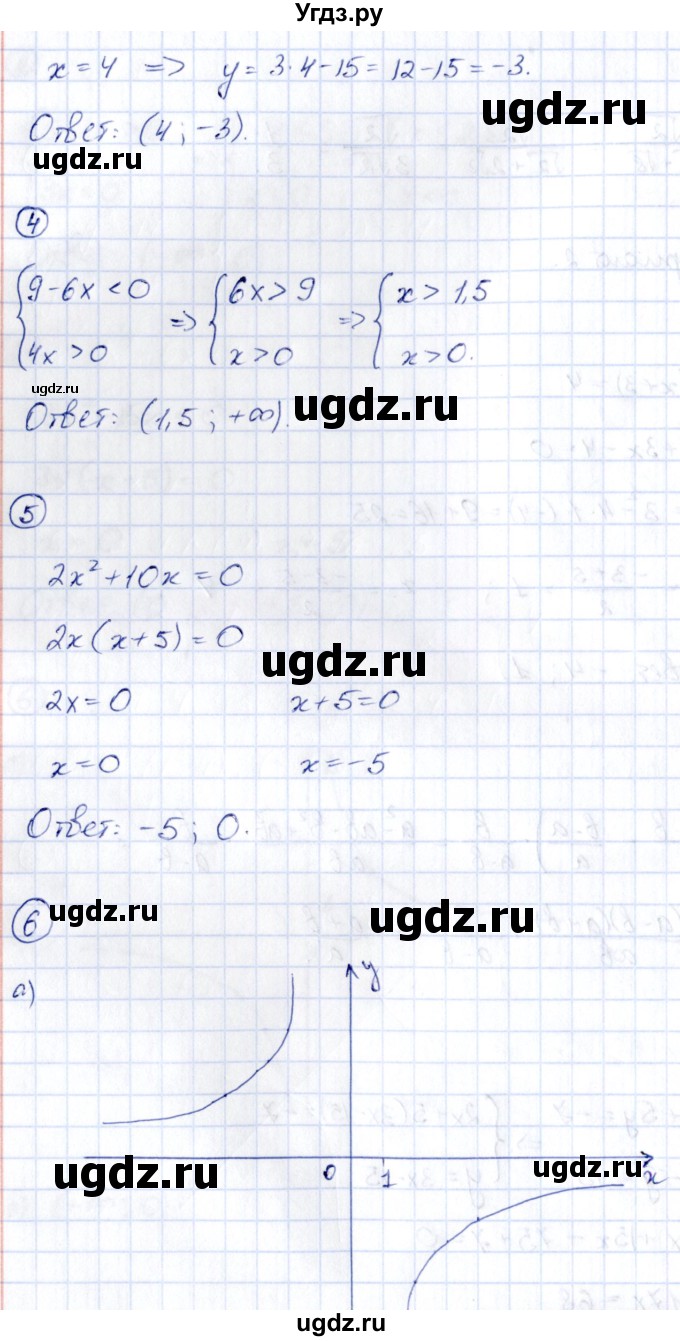 Угдз.ру
x = 4 => y = 3·4-15 = 12-15 = -3.
ugdz.ru
Ответ: (4; -3).
ugdz.ru
4
{9-6x<0 => {6x>9 => {x>1,5
4x>0 x>0 x>0.
ugdz.ru
ugdz.ru
Ответ: (1,5; +∞).
5
2x²+10x=0
2x(x+5)=0
ugdz.ru
2x=0 x+5=0
x=0 x=-5
Ответ: -5; 0.
6
ugdz.ru
ugdz.ru
а)
y
0 1 x
ugdz.ru
ugdz.ru
ugdz.ru